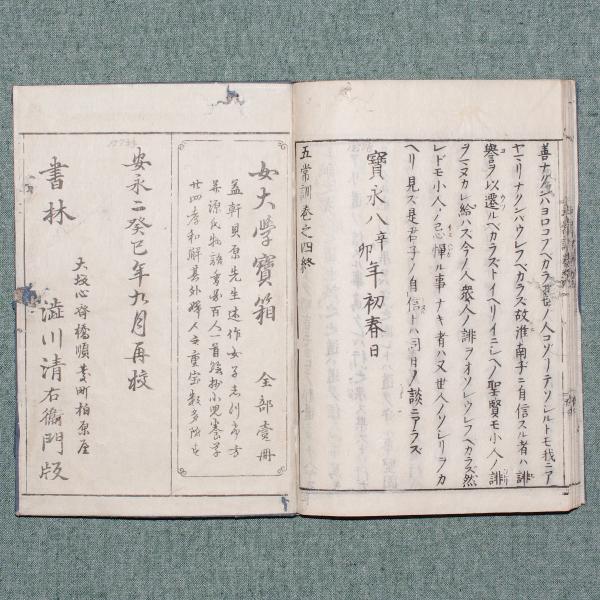 善ナクンバヨロコブベカラズ世ノ人コゾーテソシルトモ我ニア
ヤマリナクンバウレフベカラズ故淮南子ニ自信スル者ハ誹
譽ヲ以遷ルベカラストイヘリイニシヘノ聖賢モ小人ノ誹
ヲマヌカレ給ハス今ノ人衆人ノ誹ヲオソレウレフベカラズ然
レドモ小人ノ忌憚ル事ナキ者ハ又世人ノソシリヲカ
ヘリ見ズ是君子ノ自信トハ同日ノ談ニアラズ
寶永八辛卯年初春日
五常訓卷之四終
女大學寶箱 全部壹冊
益軒貝原先生述作女子
源氏物語 百人一首 小児養草
廿四孝和解其外 人之重宝数多
安永二癸巳年九月再校
大坂心斎橋順慶町柏原屋
書林 澁川清右衞門版